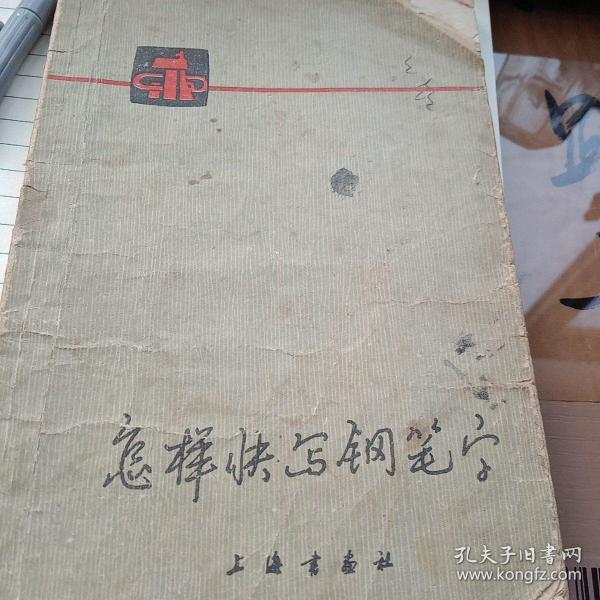 怎样快写钢笔字
上海书画社
孔夫子旧书网
www.kongfz.com